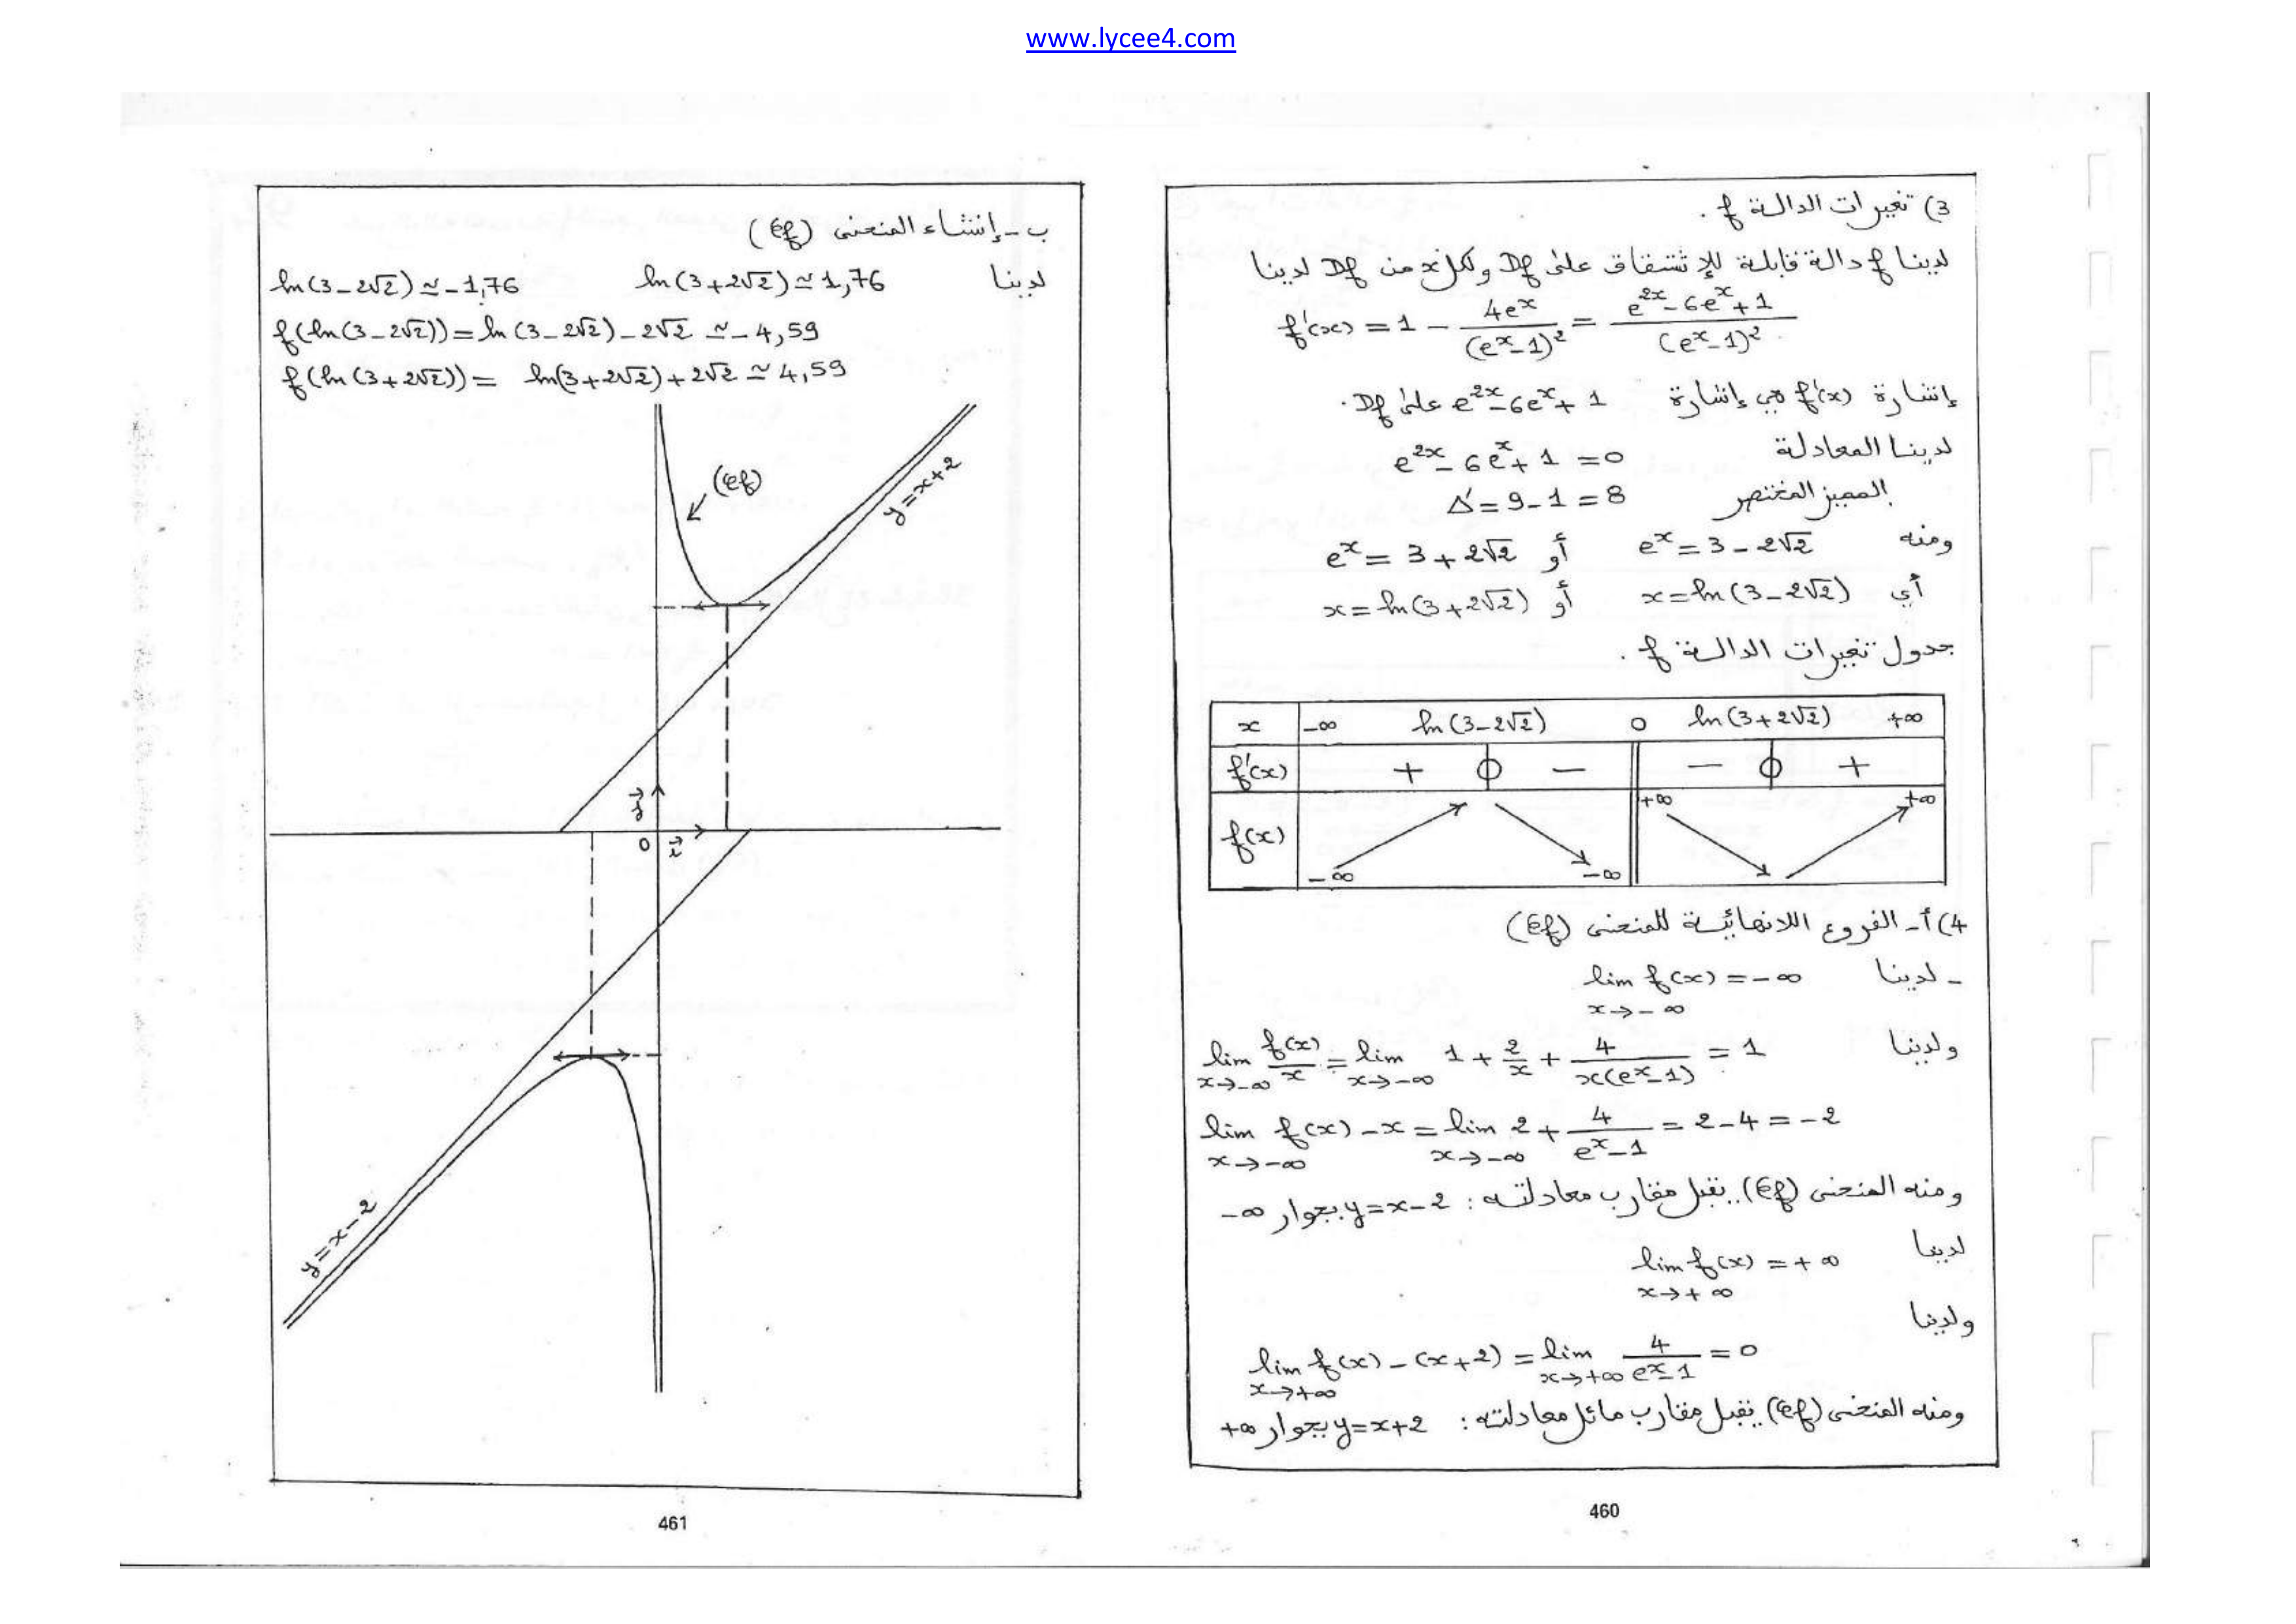 www.lycee4.com
3) تغيرات الدالة f .
لدينا f دالة قابلة للإشتقاق على Df ولكل x من Df لدينا
f'(x) = 1 - 4e^x/(e^x-1)² = (e^2x - 6e^x + 1)/(e^x-1)²
إشارة f'(x) هي إشارة e^2x - 6e^x + 1 على Df .
لدينا المعادلة e^2x - 6e^x + 1 = 0
المميز المختصر Δ' = 9 - 1 = 8
ومنه e^x = 3 - 2√2 أو e^x = 3 + 2√2
أي x = ln(3 - 2√2) أو x = ln(3 + 2√2)
جدول تغيرات الدالة f .
x -∞ ln(3-2√2) 0 ln(3+2√2) +∞
f'(x) + 0 - - 0 +
+∞ +∞
f(x)
-∞ -∞
4) أ - الفروع اللانهائية للمنحنى (Cf)
- لدينا lim f(x) = -∞
x→-∞
ولدينا lim f(x)/x = lim 1 + 2/x + 4/(x(e^x-1)) = 1
x→-∞ x→-∞
lim f(x) - x = lim 2 + 4/(e^x-1) = 2 - 4 = -2
x→-∞ x→-∞
ومنه المنحنى (Cf) يقبل مقارب معادلته : y = x - 2 بجوار -∞
لدينا lim f(x) = +∞
x→+∞
ولدينا
lim f(x) - (x+2) = lim 4/(e^x-1) = 0
x→+∞ x→+∞
ومنه المنحنى (Cf) يقبل مقارب مائل معادلته : y = x+2 بجوار +∞
460
ب - إنشاء المنحنى (Cf)
لدينا ln(3+2√2) ≃ 1,76 ln(3-2√2) ≃ -1,76
f(ln(3-2√2)) = ln(3-2√2) - 2√2 ≃ -4,59
f(ln(3+2√2)) = ln(3+2√2) + 2√2 ≃ 4,59
(Cf)
y = x+2
j
0 i
y = x-2
461